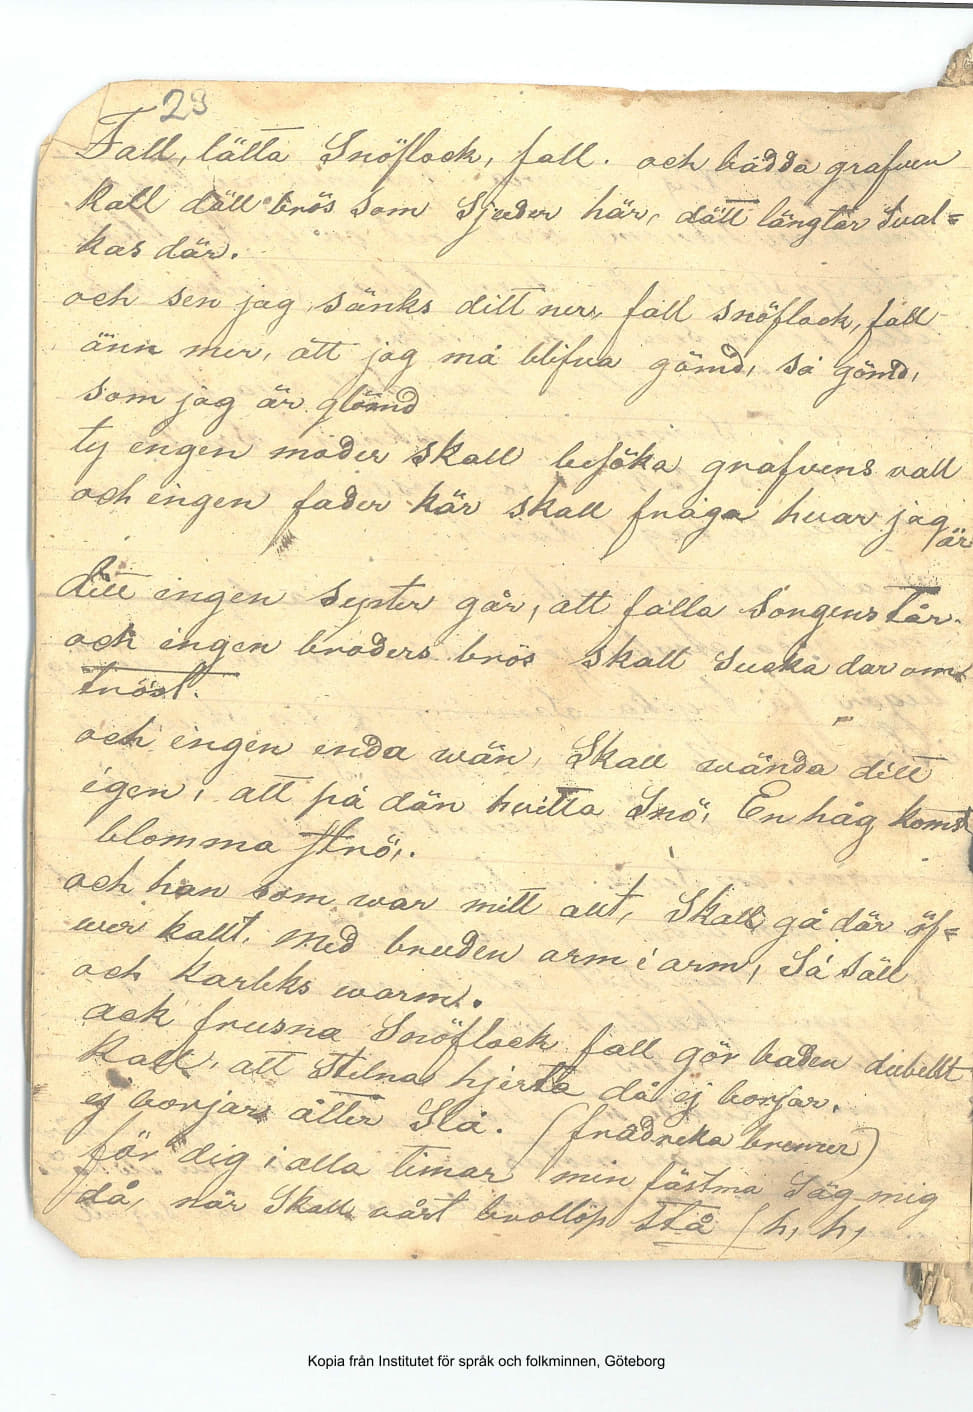 29
Fall, lätta Snöflock, fall. och bädda grafven
kall däll brös som Sjuder här, dätt längtar Sval=
kas där.
och sen jag sänks ditt ner, fall snöflock, fall
änn mer, att jag må blifva gömd, så gömd,
som jag är glömd
ty engen moder skall besöka grafvens vall
och ingen fader kär skall fråga hvar jag
är
ditt ingen syster går, att falla Songens tår.
och ingen broders brös skall Sucka dar om
tröst.
och ingen enda wän, Skall wända ditt
igen, att på dän hvitta Snö, En håg komst
blomma strö,.
och han som war mitt allt, Skall gå där öf=
wer kallt, med bruden arm i arm, Så Säll
och karleks warm,.
ack frusna Snöflock fall gör baden dubellt
kall, att Stelnas hjerta då ej borjar,
ej borjar åtter Slå. (fradreka bremer)
för dig i alla timar min fästma Säg mig
då, när Skall vårt brollöp Stå (h, h,
Kopia från Institutet för språk och folkminnen, Göteborg